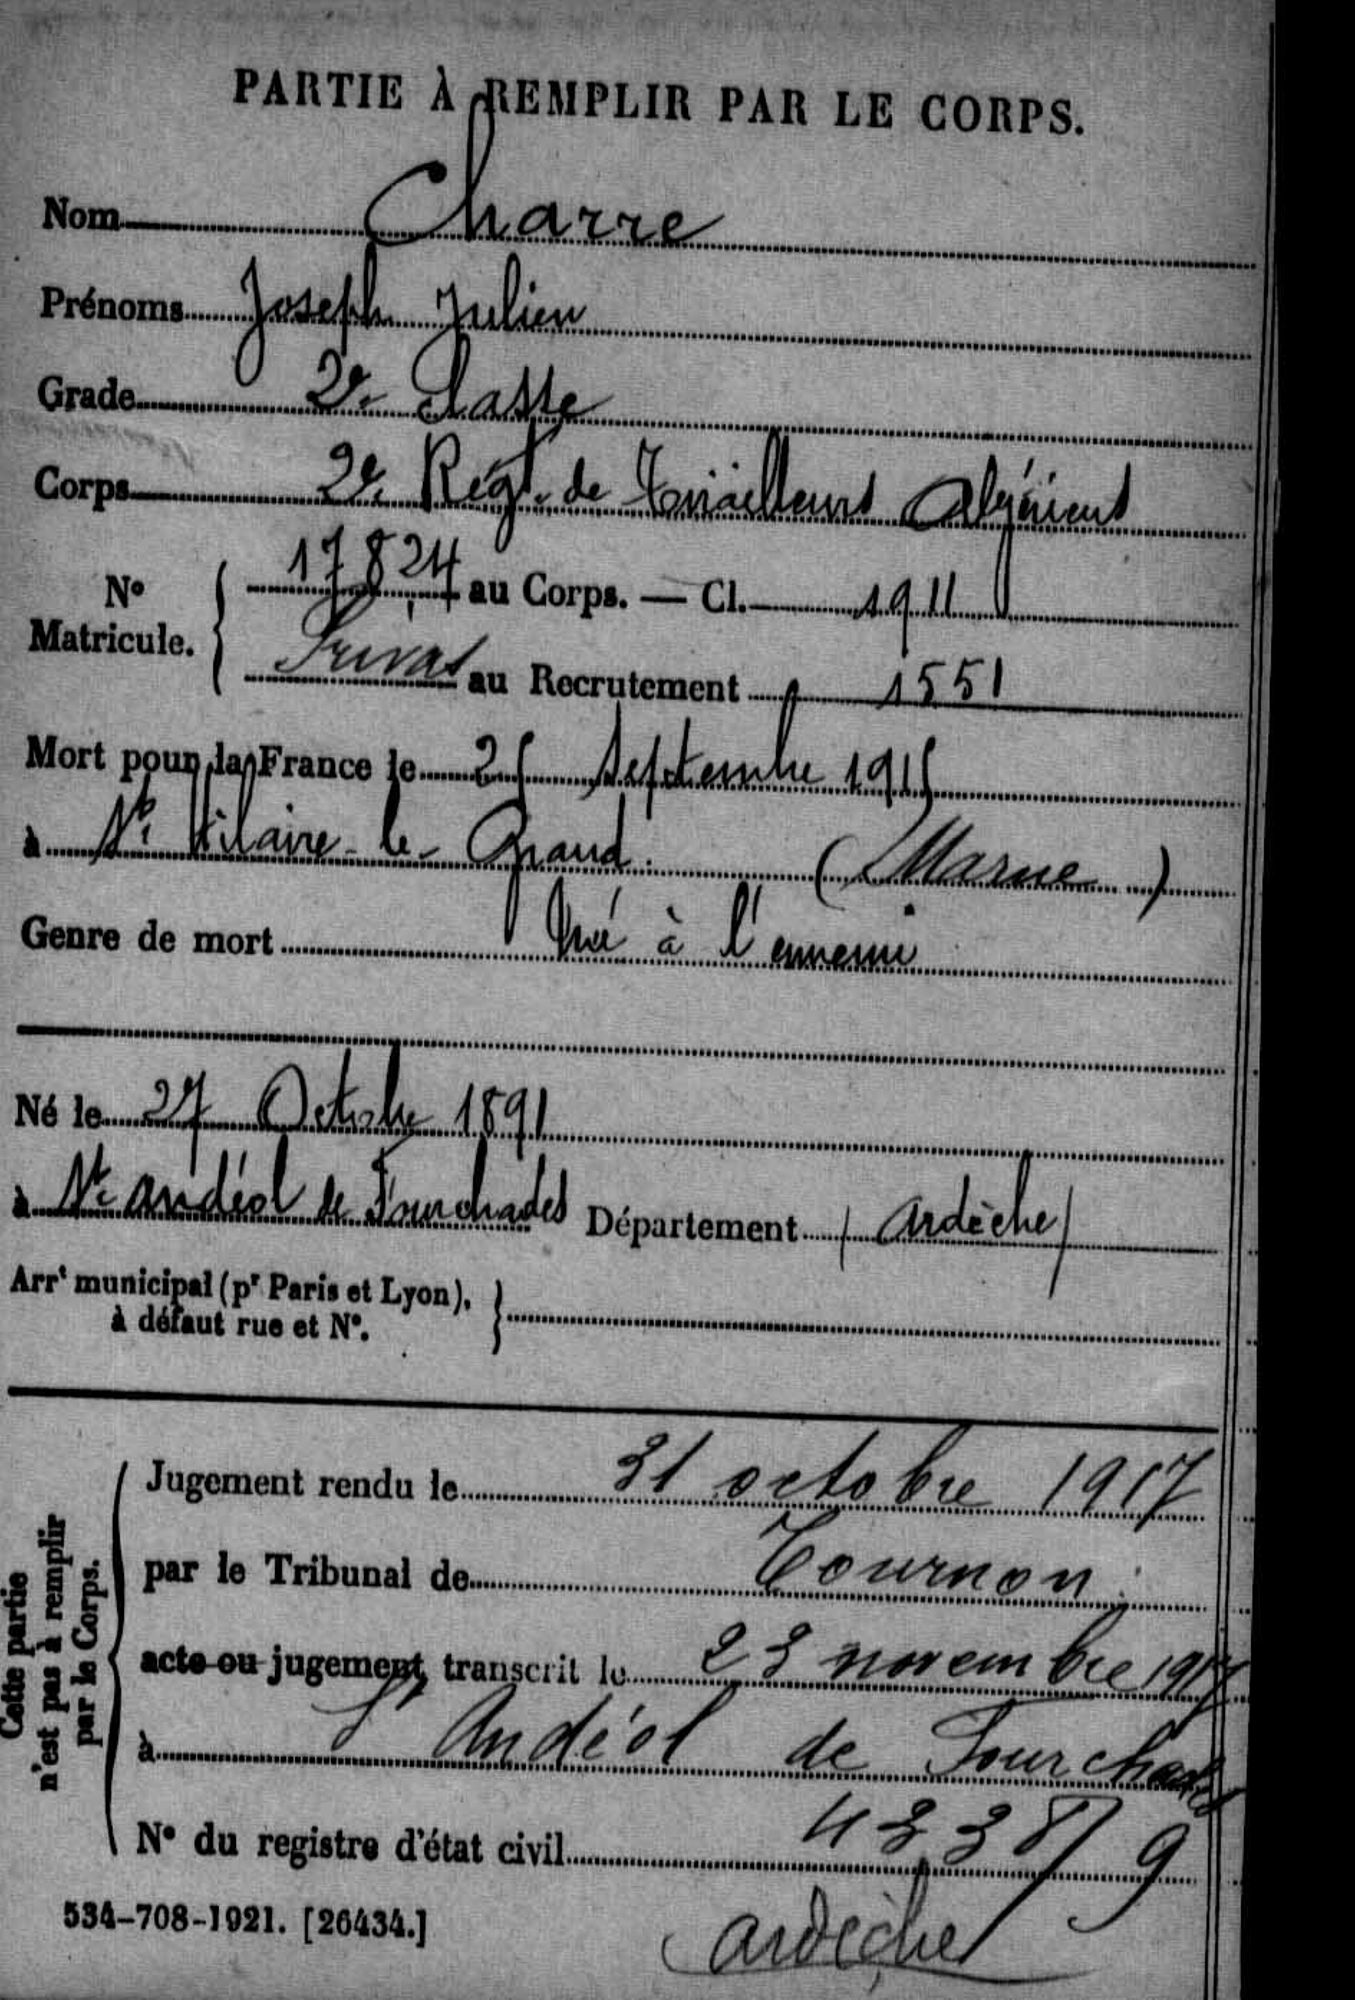 PARTIE À REMPLIR PAR LE CORPS.
Nom Charre
Prénoms Joseph Julien
Grade 2e Classe
Corps 2e Régt. de Tirailleurs Algériens
No Matricule. 17824 au Corps. — Cl. 1911
Privas au Recrutement 1551
Mort pour la France le 25 Septembre 1915
à St. Hilaire-le-Grand. (Marne)
Genre de mort Tué à l'ennemi
Né le 27 Octobre 1891
à St. Andéol de Fourchades Département (Ardèche)
Arrt municipal (pr Paris et Lyon),
à défaut rue et No.
Cette partie
n'est pas à remplir
par le Corps.
Jugement rendu le 31 octobre 1917
par le Tribunal de Tournon
acte ou jugement transcrit le 23 novembre 1917
à St Andéol de Fourchades
No du registre d'état civil 4338/9
534-708-1921. [26434.]
Ardèche